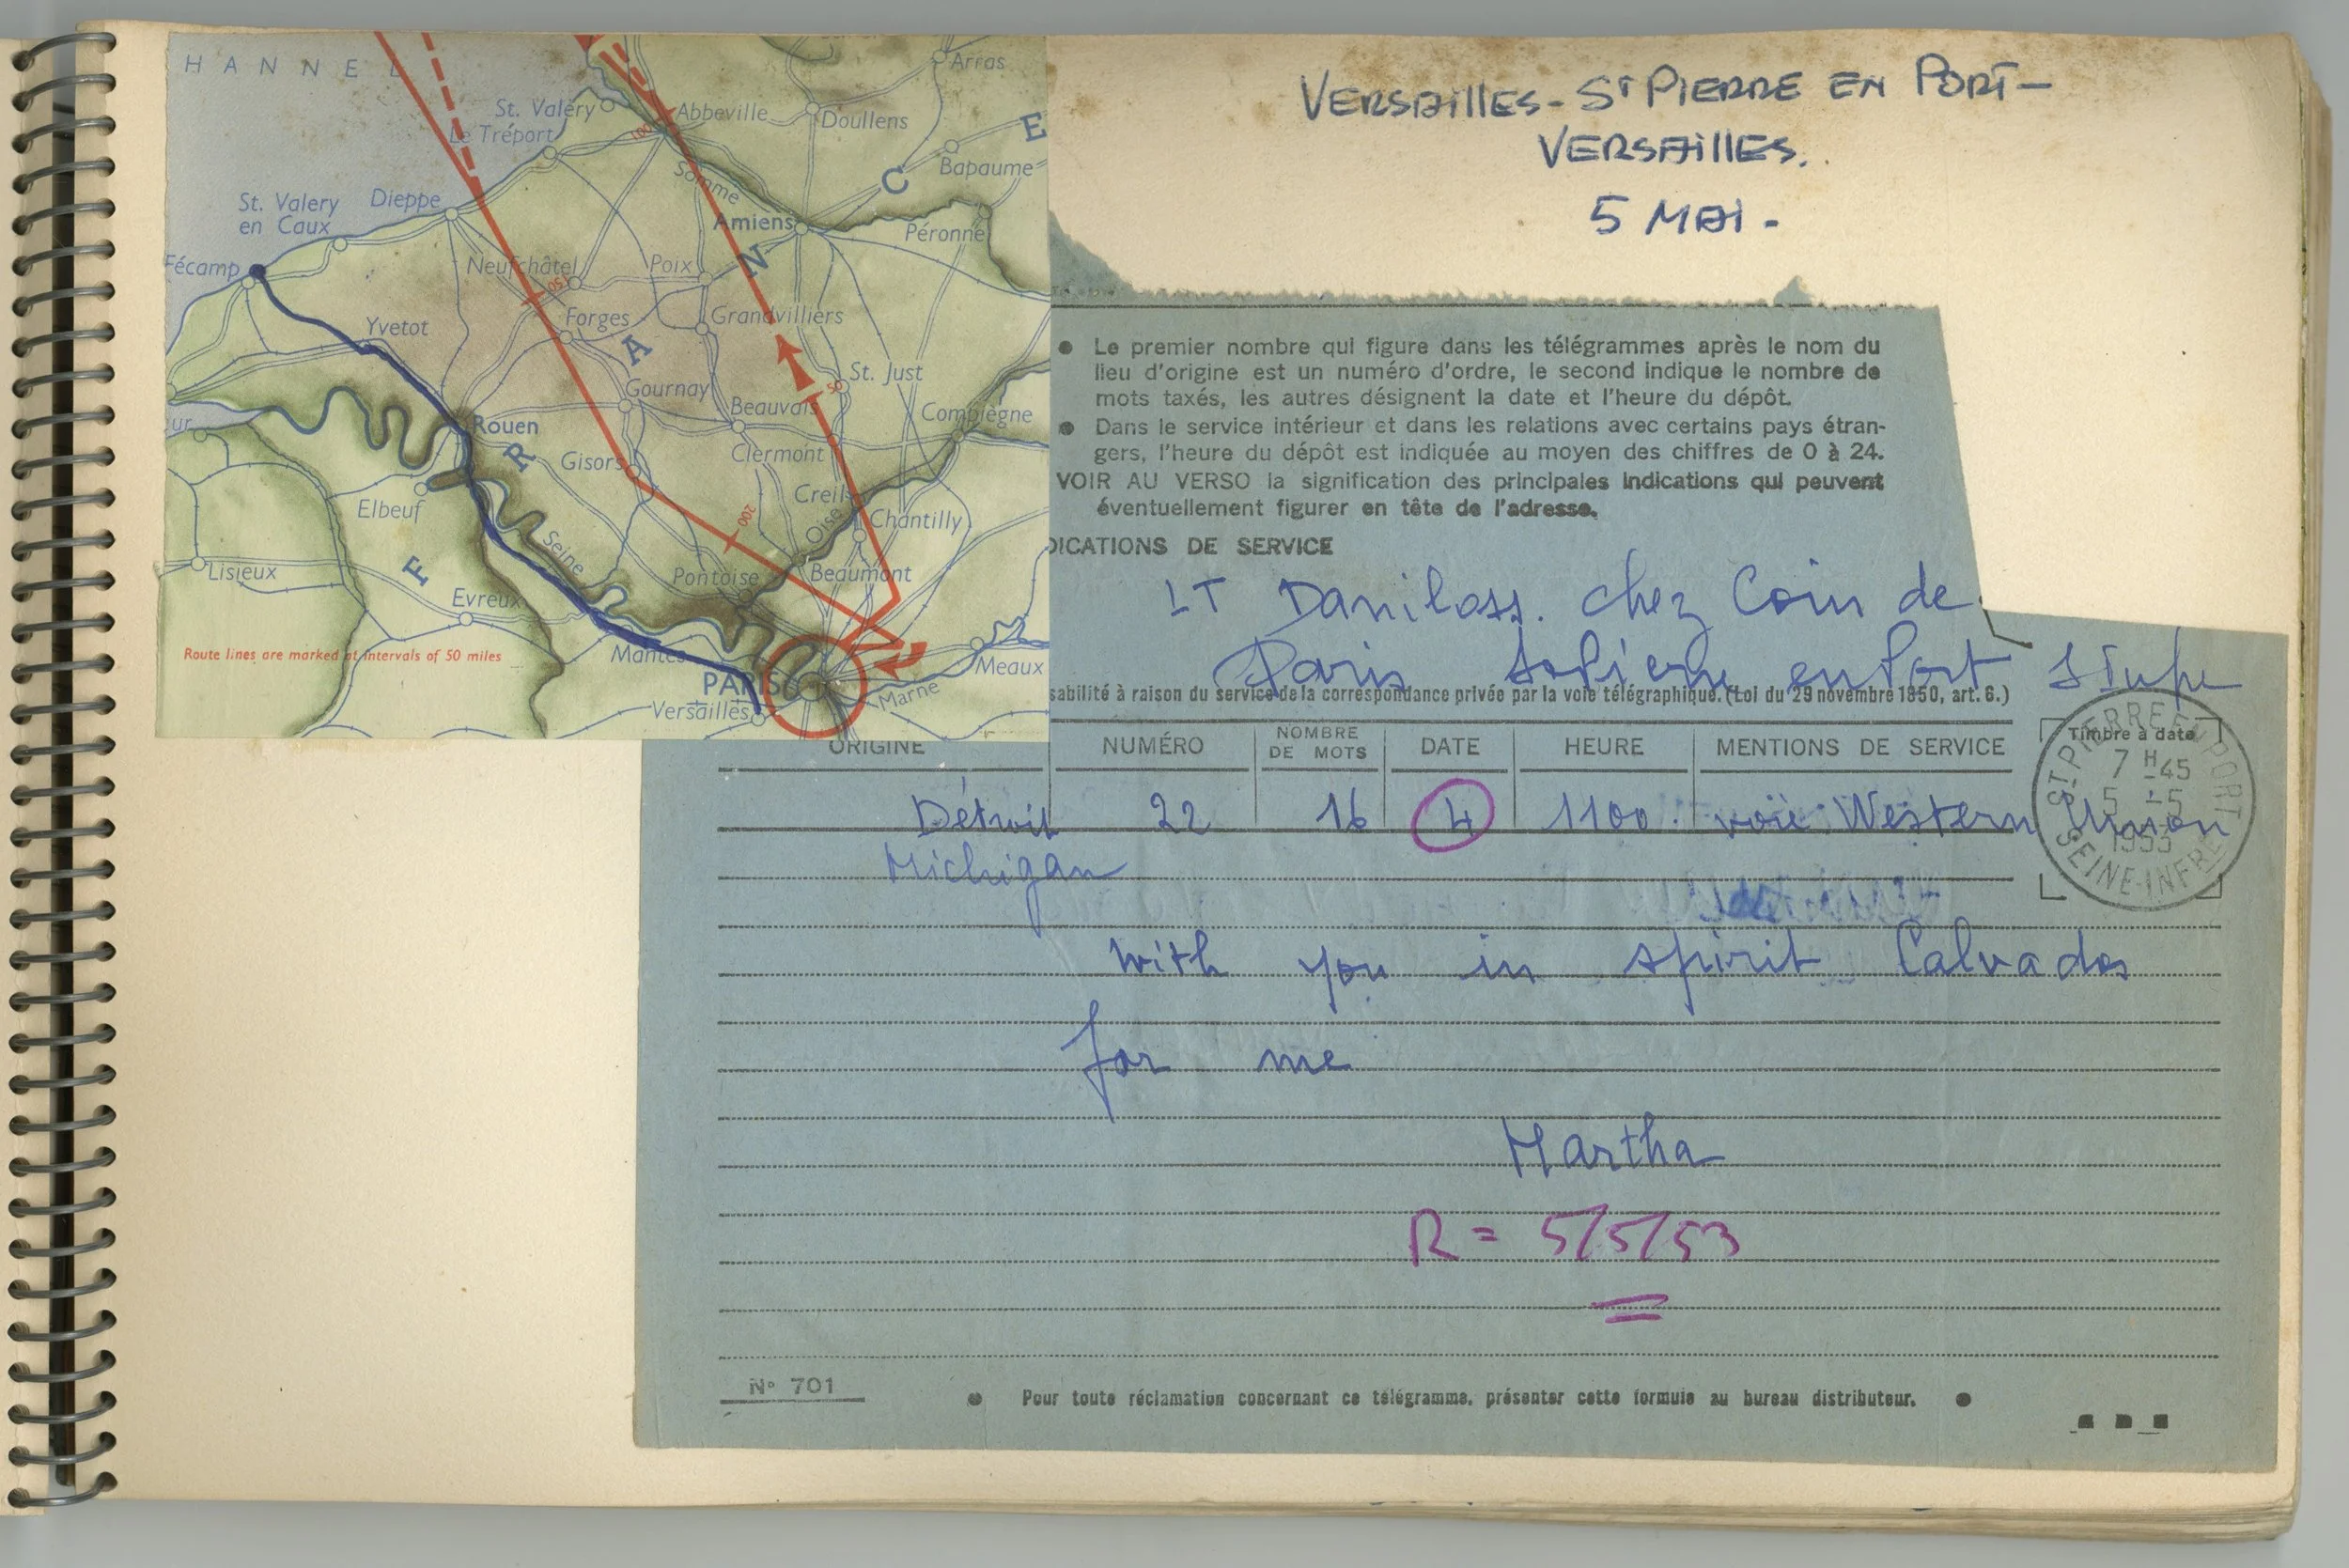 VERSAILLES - ST PIERRE EN PORT -
VERSAILLES.
5 MAI -
HANNEL
Arras
St. Valéry
Abbeville
Doullens
Le Tréport
100
E
Bapaume
Somme
C
St. Valery
en Caux
Dieppe
Amiens
Péronne
Fécamp
Neufchâtel
150
Poix
N
Yvetot
Forges
Grandvilliers
A
St. Just
50
Gournay
Beauvais
Compiègne
Rouen
R
Gisors
Clermont
Creil
Elbeuf
200
Oise
Chantilly
Seine
Lisieux
F
Pontoise
Beaumont
Evreux
Route lines are marked at intervals of 50 miles
Mantes
Meaux
PARIS
Marne
Versailles
● Le premier nombre qui figure dans les télégrammes après le nom du
lieu d'origine est un numéro d'ordre, le second indique le nombre de
mots taxés, les autres désignent la date et l'heure du dépôt.
● Dans le service intérieur et dans les relations avec certains pays étran-
gers, l'heure du dépôt est indiquée au moyen des chiffres de 0 à 24.
VOIR AU VERSO la signification des principales indications qui peuvent
éventuellement figurer en tête de l'adresse.
DICATIONS DE SERVICE
LT Daniloss. chez Coin de
Paris StPierre en Port
sabilité à raison du service de la correspondance privée par la voie télégraphique. (Loi du 29 novembre 1850, art. 6.)
ORIGINE NUMÉRO NOMBRE DE MOTS DATE HEURE MENTIONS DE SERVICE
Timbre à date
ST PIERRE EN PORT
7 H 45
5 -5
1953
SEINE-INFRE
Détroit 22 16 4 1100. voie Western Union
Michigan
with you in spirit Calvados
for me
Martha
R = 5/5/53
N° 701
● Pour toute réclamation concernant ce télégramme, présenter cette formule au bureau distributeur. ●